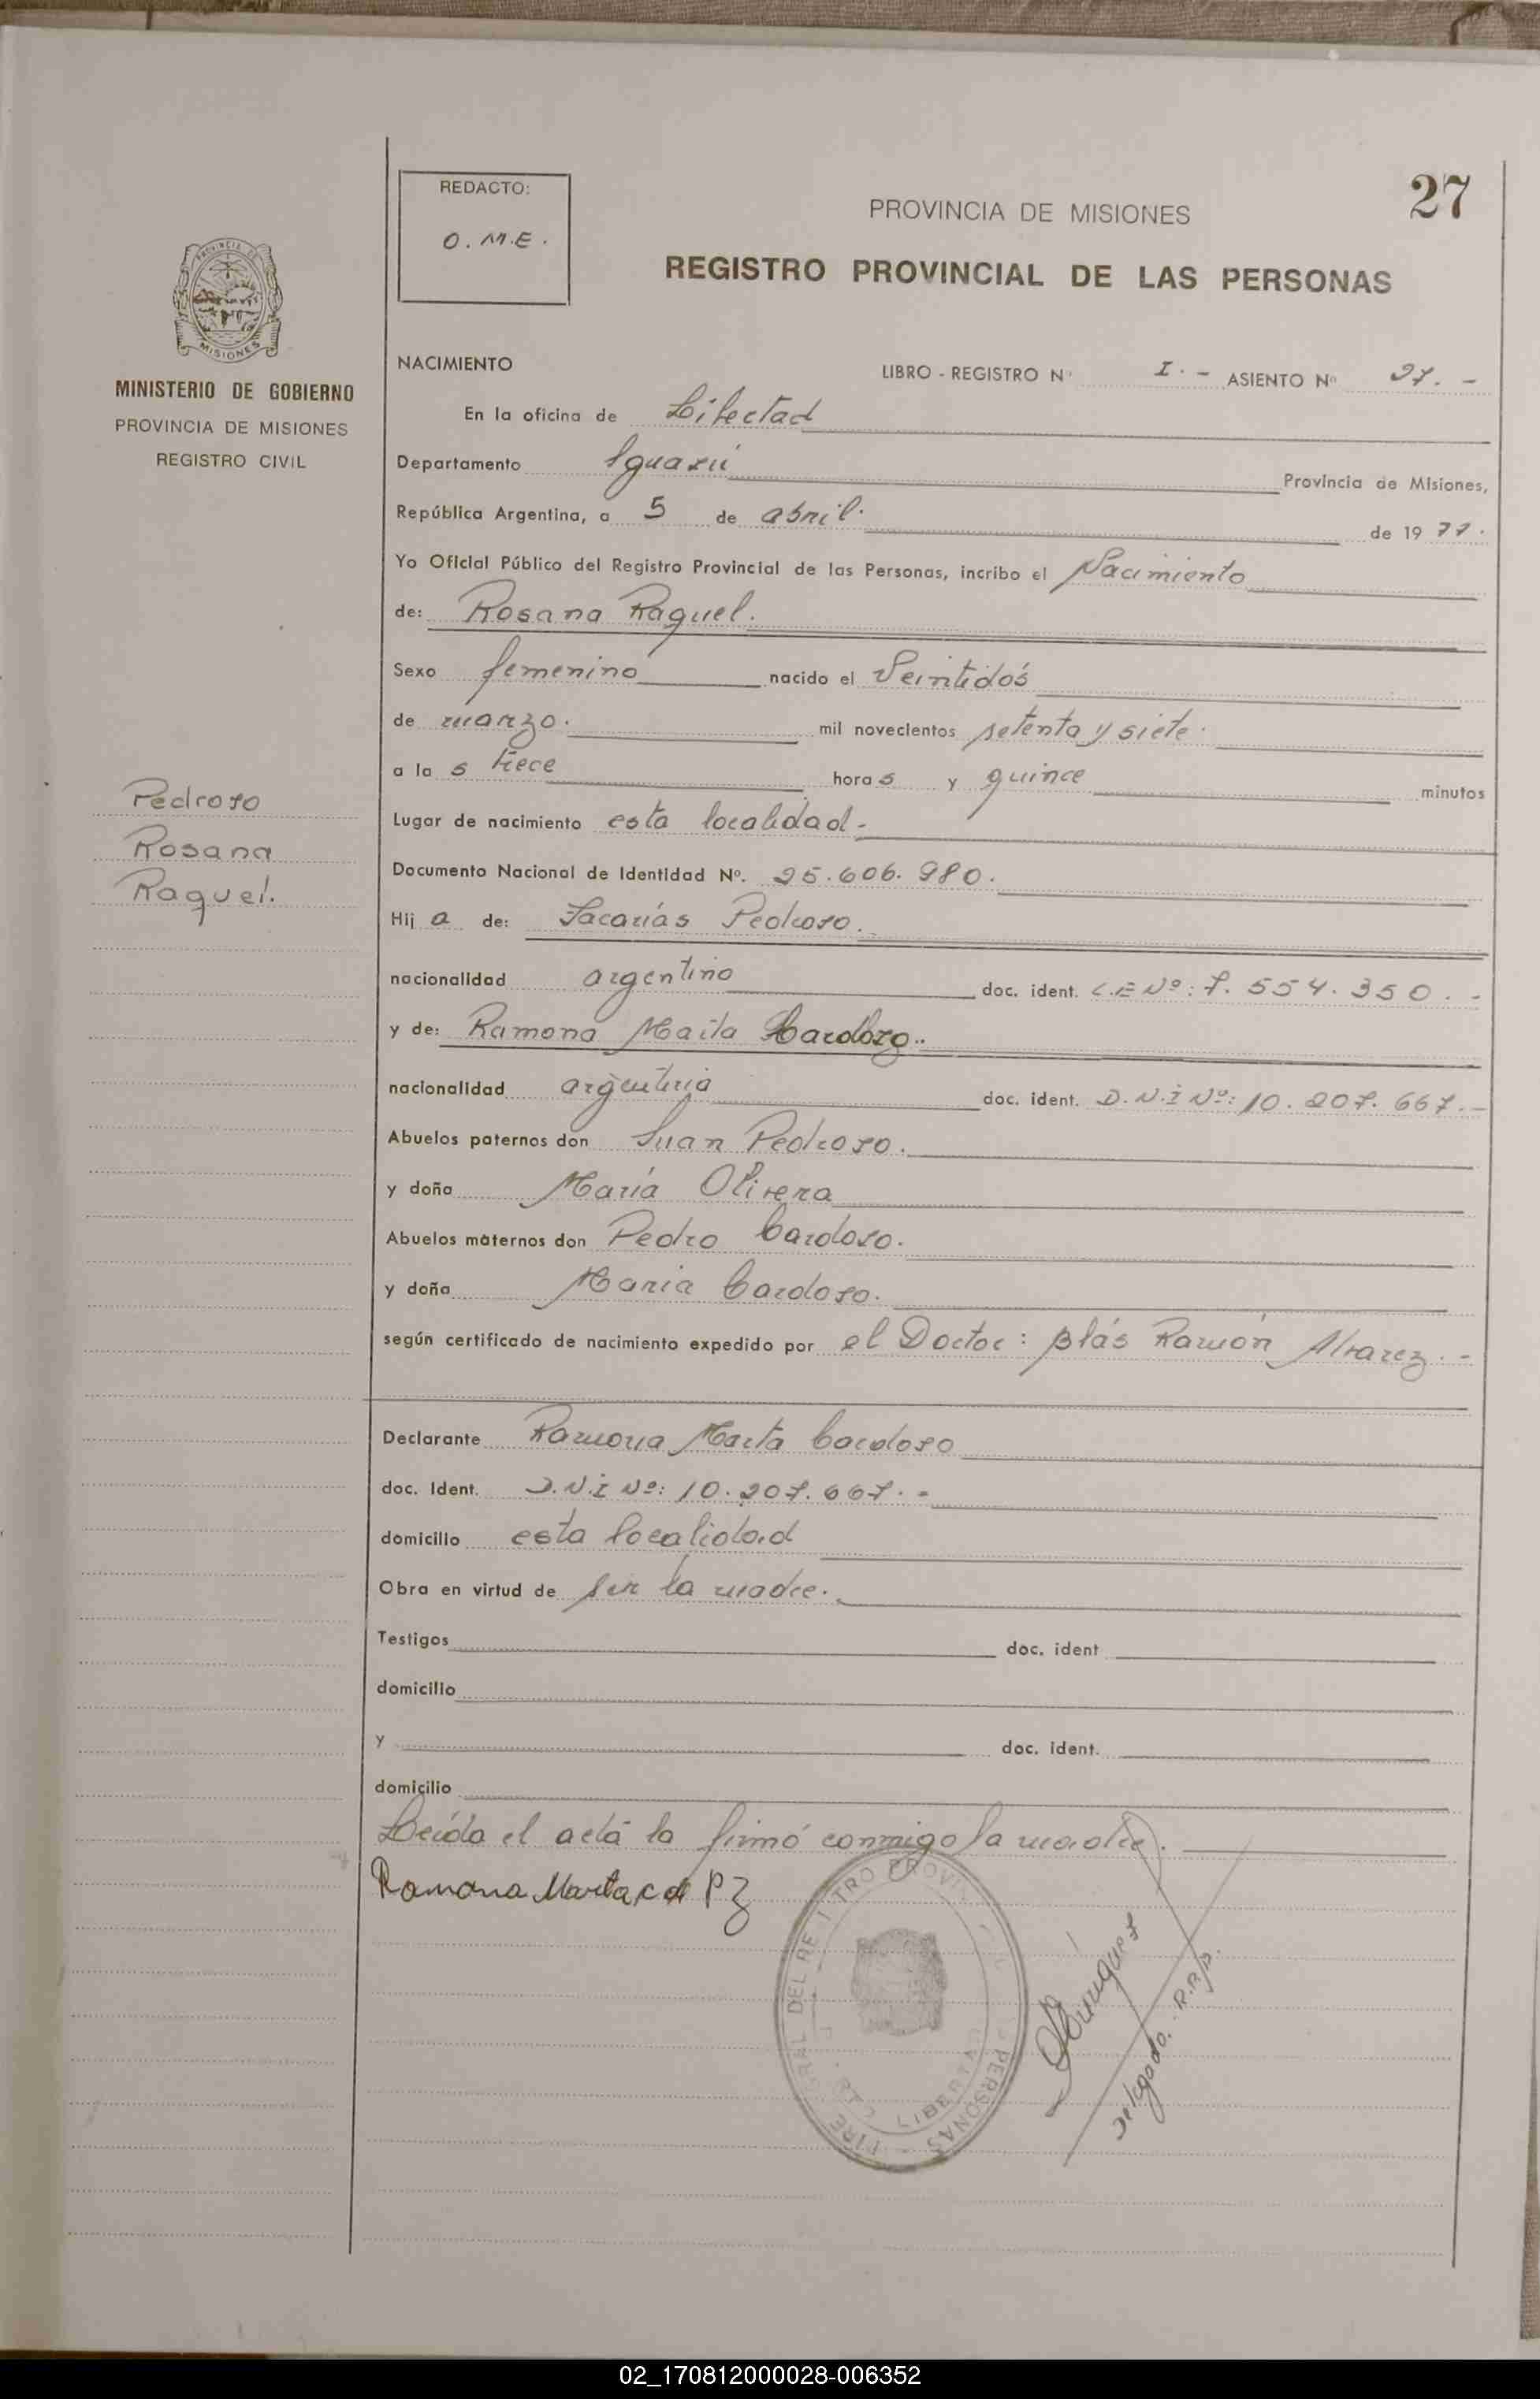 27
REDACTO:
O.M.E.
PROVINCIA DE MISIONES
REGISTRO PROVINCIAL DE LAS PERSONAS
MINISTERIO DE GOBIERNO
PROVINCIA DE MISIONES
REGISTRO CIVIL
NACIMIENTO LIBRO - REGISTRO Nº I.- ASIENTO Nº 27.-
En la oficina de Libertad
Departamento Iguazú Provincia de Misiones,
República Argentina, a 5 de abril. de 1977.
Yo Oficial Público del Registro Provincial de las Personas, incribo el Nacimiento
de: Rosana Raquel.
Sexo femenino nacido el Veintidós
de marzo. mil novecientos setenta y siete.
a la s trece hora s y quince minutos
Lugar de nacimiento esta localidad-
Pedrozo
Rosana
Raquel.
Documento Nacional de Identidad Nº. 25.606.980.
Hij a de: Zacarías Pedrozo.
nacionalidad argentino doc. ident. L.E Nº: 7.554.350.-
y de: Ramona Marta Cardozo..
nacionalidad argentina doc. ident. D.N.I Nº: 10.207.667.-
Abuelos paternos don Juan Pedrozo.
y doña María Olivera
Abuelos maternos don Pedro Cardozo.
y doña María Cardozo.
según certificado de nacimiento expedido por el Doctor: Blás Ramón Alvarez.-
Declarante Ramona Marta Cardozo
doc. Ident. D.N.I Nº: 10.207.667.-
domicilio esta localidad
Obra en virtud de ser la madre.
Testigos doc. ident
domicilio
y doc. ident.
domicilio
Leída el acta la firmó conmigo la madre.
Ramona Marta C de PZ
PERSONAS
LIBERTAD
Delegada. R.P.P.
02_170812000028-006352